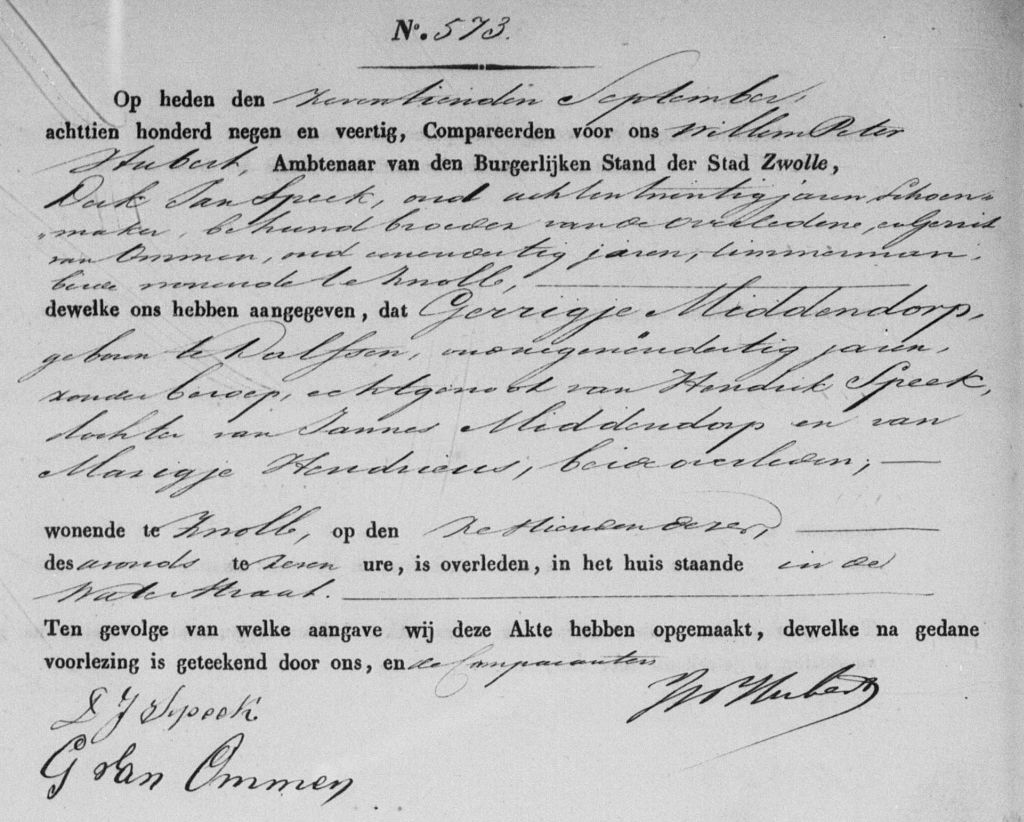 No. 573.
Op heden den zeventienden September,
achttien honderd negen en veertig, Compareerden voor ons Willem Peter
Hubert, Ambtenaar van den Burgerlijken Stand der Stad Zwolle,
Derk Jan Speek, oud achtentwintig jaren, schoen„
„maker, behuwd broeder van de overledene, en Gerrit
van Ommen, oud eenendertig jaren, timmerman,
beide wonende te Zwolle,
dewelke ons hebben aangegeven, dat Gerrigje Middendorp,
geboren te Dalfsen, oud negenendertig jaren,
zonder beroep, echtgenoot van Hendrik Speek,
dochter van Jannes Middendorp en van
Marigje Hendricus, beide overleden;
wonende te Zwolle, op den zestienden dezer,
des avonds te zeven ure, is overleden, in het huis staande in de
Waterstraat.
Ten gevolge van welke aangave wij deze Akte hebben opgemaakt, dewelke na gedane
voorlezing is geteekend door ons, en de Comparanten
WP Hubert
D J Speek
G van Ommen